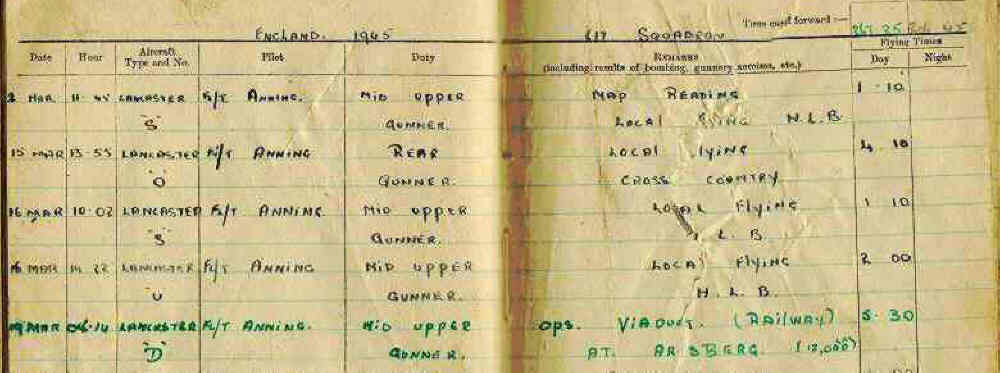 ENGLAND. 1945 617 SQUADRON Time carried forward :—
Date Hour Aircraft Type and No. Pilot Duty REMARKS (including results of bombing, gunnery, exercises, etc.) Flying Times Day Night
MAR 11.45 LANCASTER F/T ANNING. MID UPPER MAP READING 1.10
"S" GUNNER. LOCAL FLYING H.L.B
15 MAR 13.55 LANCASTER F/T ANNING REAR LOCAL lying 4 10
"O" GUNNER. CROSS COUNTRY
16 MAR 10.02 LANCASTER F/T ANNING MID UPPER LOCAL Flying 1 10
"S" GUNNER. L.B.
16 MAR 14 22 LANCASTER F/T ANNING MID UPPER LOCAL Flying 2 00
"U" GUNNER. H.L.B.
19 MAR LANCASTER F/T ANNING. MID UPPER OPS. VIADUCT. (RAILWAY) 5.30
"D" GUNNER. AT. ARNSBERG.